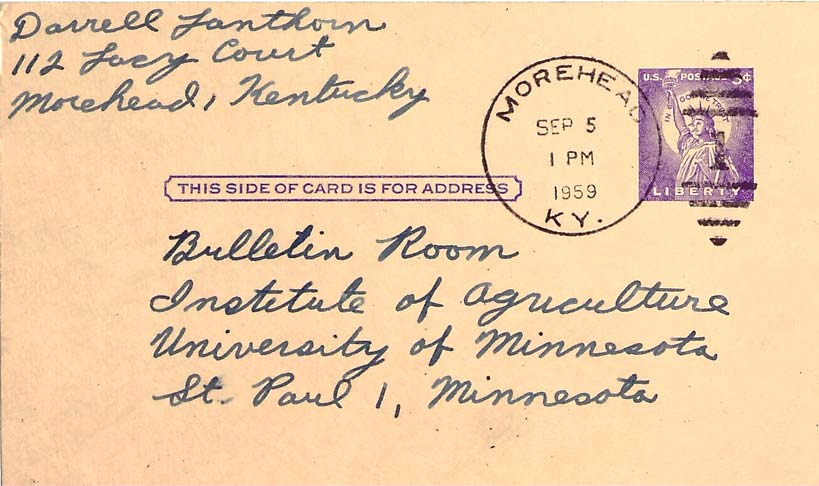 Darrell Lanthorn
112 Lacy Court
Morehead, Kentucky
MOREHEAD
SEP 5
1 PM
1959
KY.
U.S. POSTAGE 3¢
IN GOD WE TRUST
LIBERTY
THIS SIDE OF CARD IS FOR ADDRESS
Bulletin Room
Institute of Agriculture
University of Minnesota
St. Paul 1, Minnesota